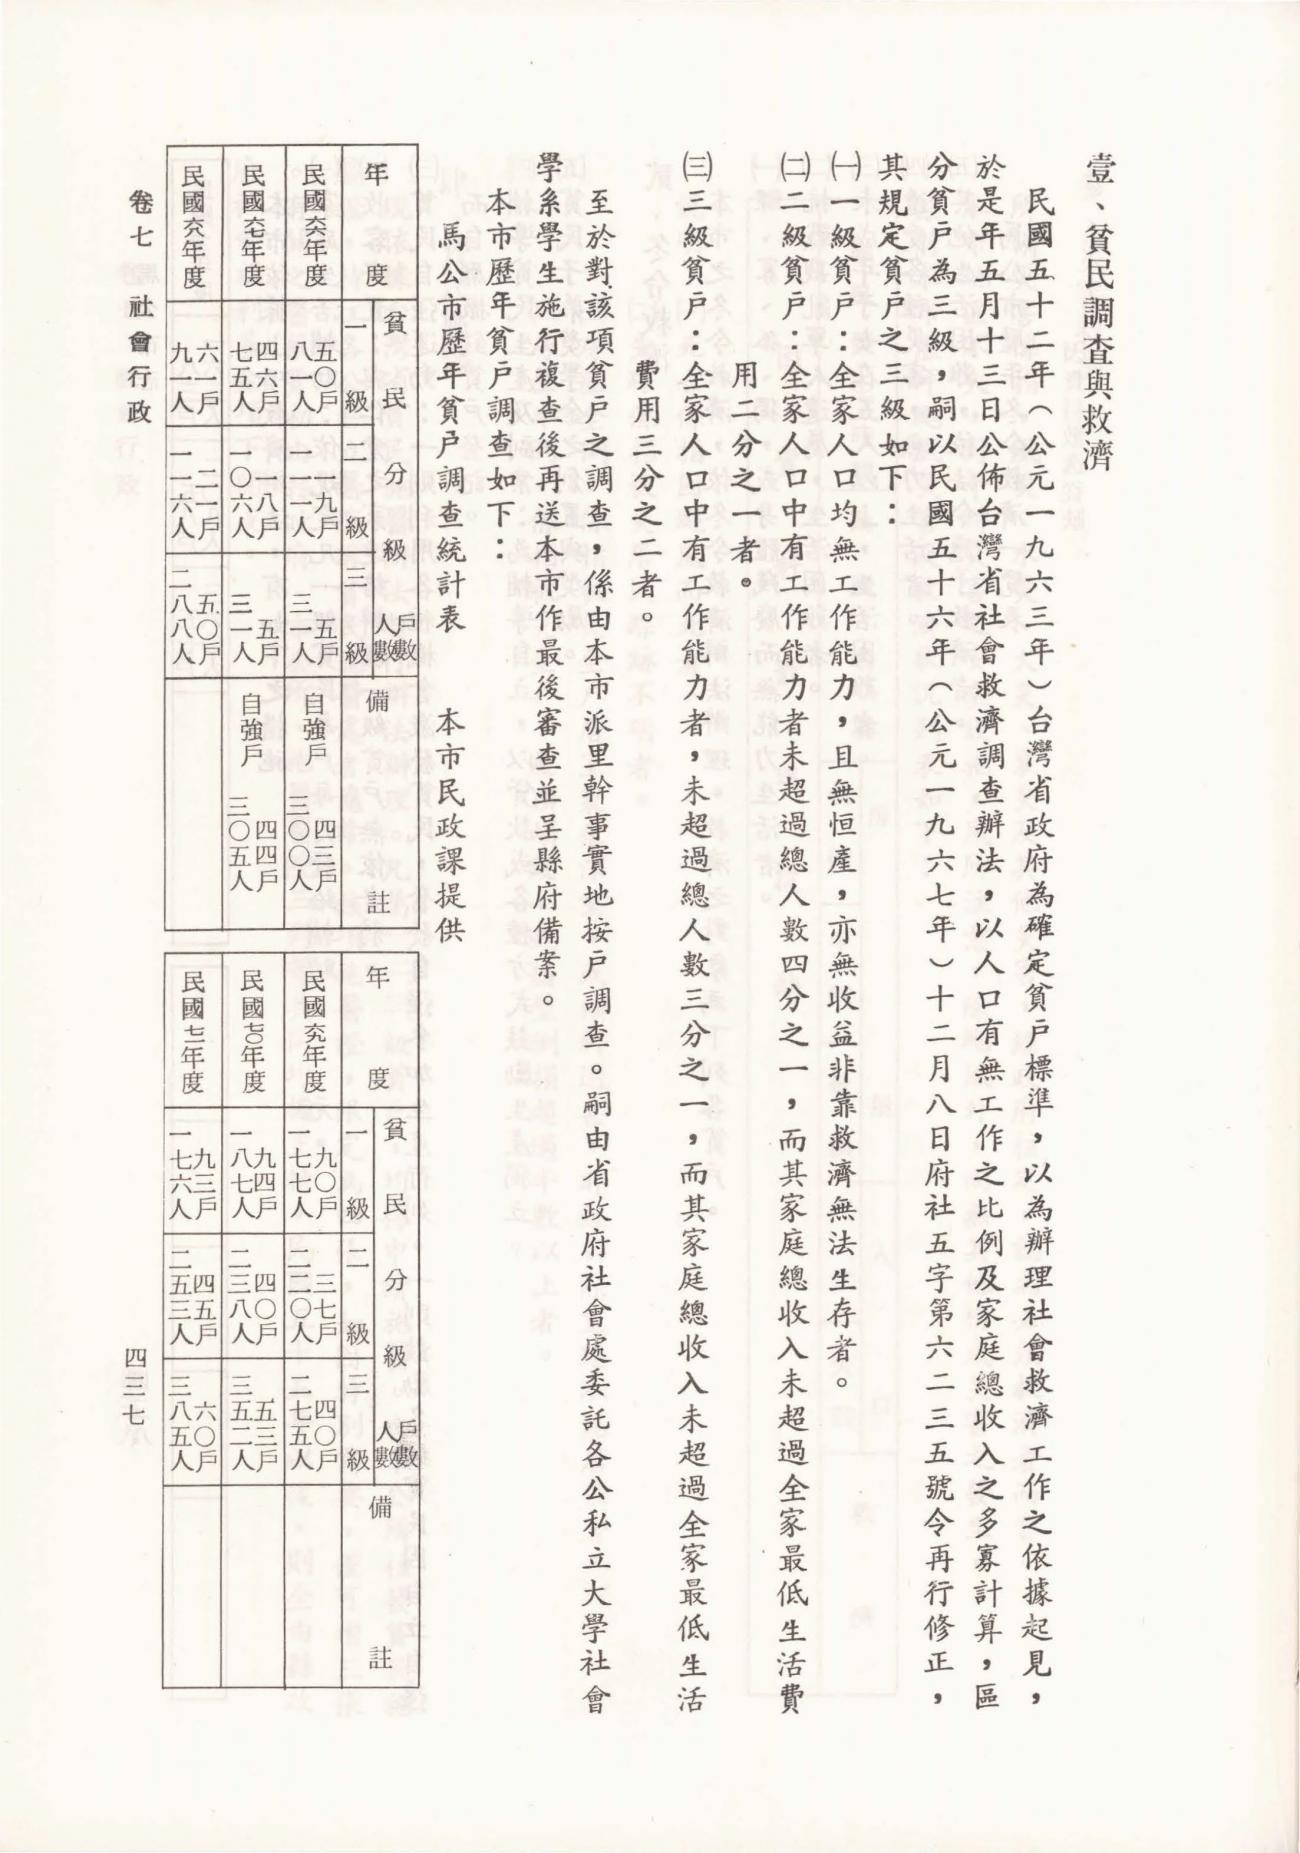 壹、貧民調查與救濟
民國五十二年(公元一九六三年)台灣省政府為確定貧戶標準,以為辦理社會救濟工作之依據起見,
於是年五月十三日公佈台灣省社會救濟調查辦法,以人口有無工作之比例及家庭總收入之多寡計算,區
分貧戶為三級,嗣以民國五十六年(公元一九六七年)十二月八日府社五字第六二三五號令再行修正,
其規定貧戶之三級如下:
㈠一級貧戶:全家人口均無工作能力,且無恒產,亦無收益非靠救濟無法生存者。
㈡二級貧戶:全家人口中有工作能力者未超過總人數四分之一,而其家庭總收入未超過全家最低生活費
用二分之一者。
㈢三級貧戶:全家人口中有工作能力者,未超過總人數三分之一,而其家庭總收入未超過全家最低生活
費用三分之二者。
至於對該項貧戶之調查,係由本市派里幹事實地按戶調查。嗣由省政府社會處委託各公私立大學社會
學系學生施行複查後再送本市作最後審查並呈縣府備案。
本市歷年貧戶調查如下:
馬公市歷年貧戶調查統計表 本市民政課提供
年度 貧民分級 戶數人數 備註
一級 二級 三級
民國六六年度 五〇戶 八一人 一九戶 一一一人 五戶 三一人 自強戶 四三戶 三〇〇人
民國六七年度 四六戶 七五人 一八戶 一〇六人 五戶 三一人 自強戶 四四戶 三〇五人
民國六八年度 六一戶 九一人 二一戶 一一六人 五〇戶 二八八人
年度 貧民分級 戶數人數 備註
一級 二級 三級
民國六九年度 九〇戶 一七七人 三七戶 二二〇人 四〇戶 二七五人
民國七〇年度 九四戶 一八七人 四〇戶 二三八人 五三戶 三五二人
民國七一年度 九三戶 一七六人 四五戶 二五三人 六〇戶 三八五人
卷七 社會行政
四三七